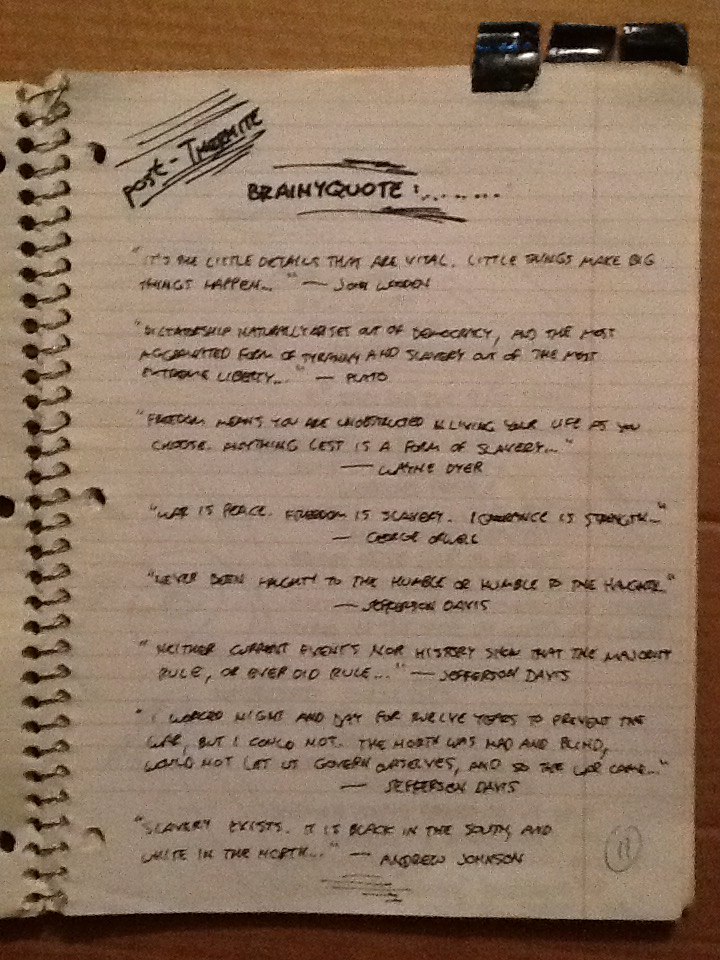 POST-THERMITE
BRAINYQUOTE:.......
"IT'S THE LITTLE DETAILS THAT ARE VITAL. LITTLE THINGS MAKE BIG
THINGS HAPPEN..." — JOHN WOODEN
"DICTATORSHIP NATURALLY ARISES OUT OF DEMOCRACY, AND THE MOST
AGGRAVATED FORM OF TYRANNY AND SLAVERY OUT OF THE MOST
EXTREME LIBERTY..." — PLATO
"FREEDOM MEANS YOU ARE UNOBSTRUCTED IN LIVING YOUR LIFE AS YOU
CHOOSE. ANYTHING LESS IS A FORM OF SLAVERY..."
— WAYNE DYER
"WAR IS PEACE. FREEDOM IS SLAVERY. IGNORANCE IS STRENGTH..."
— GEORGE ORWELL
"NEVER BEEN HAUGHTY TO THE HUMBLE OR HUMBLE TO THE"
— JEFFERSON DAVIS
"NEITHER CURRENT EVENTS NOR HISTORY SHOW THAT THE MAJORITY
RULE, OR EVER DID RULE..." — JEFFERSON DAVIS
"I WORKED NIGHT AND DAY FOR TWELVE YEARS TO PREVENT THE
WAR, BUT I COULD NOT. THE NORTH WAS MAD AND BLIND,
WOULD NOT LET US GOVERN OURSELVES, AND SO THE WAR CAME..."
— JEFFERSON DAVIS
"SLAVERY EXISTS. IT IS BLACK IN THE SOUTH, AND
WHITE IN THE NORTH..." — ANDREW JOHNSON
11